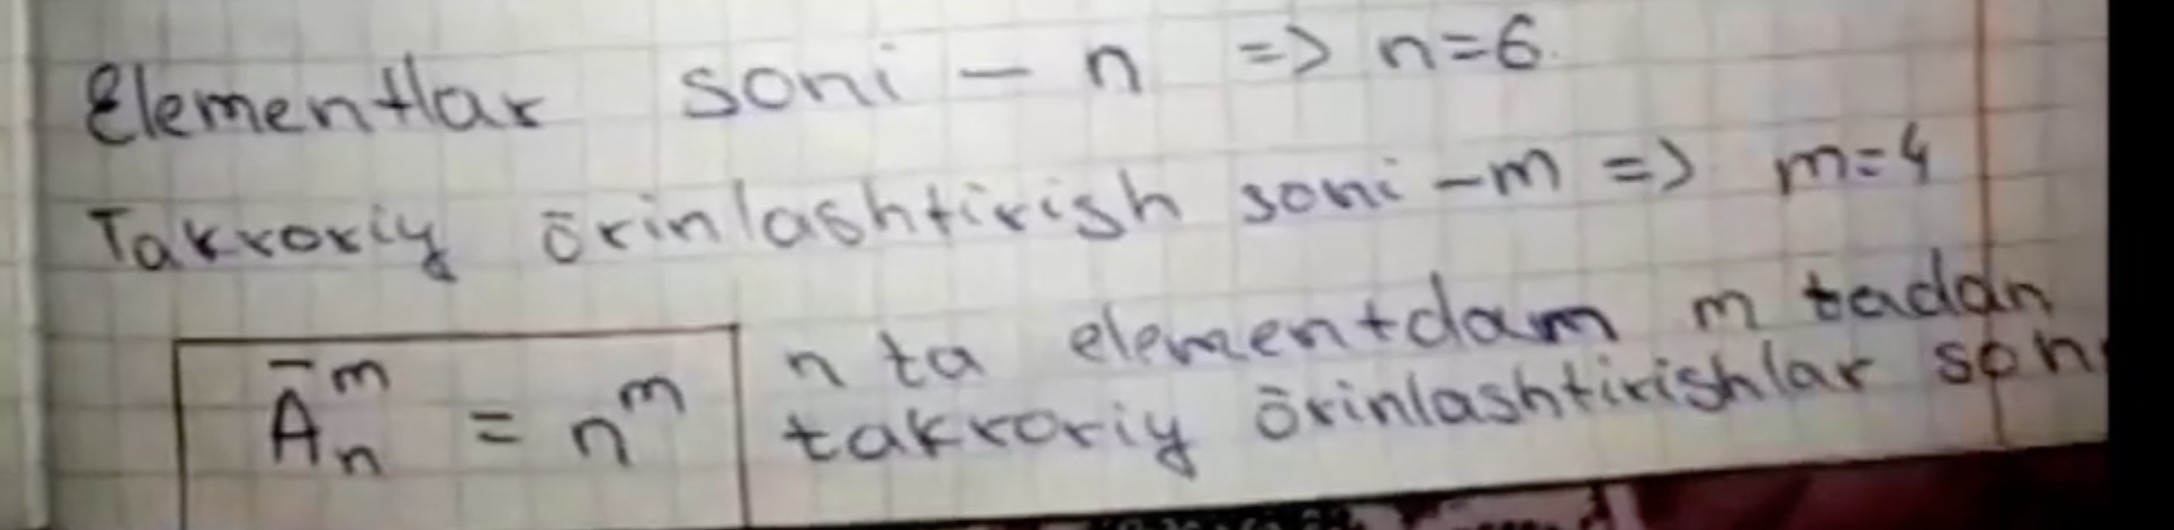 Elementlar soni – n => n=6.
Takroriy ōrinlashtirish soni – m => m=4
Ā_n^m = n^m
n ta elementdam m tadan
takroriy ōrinlashtirishlar soni